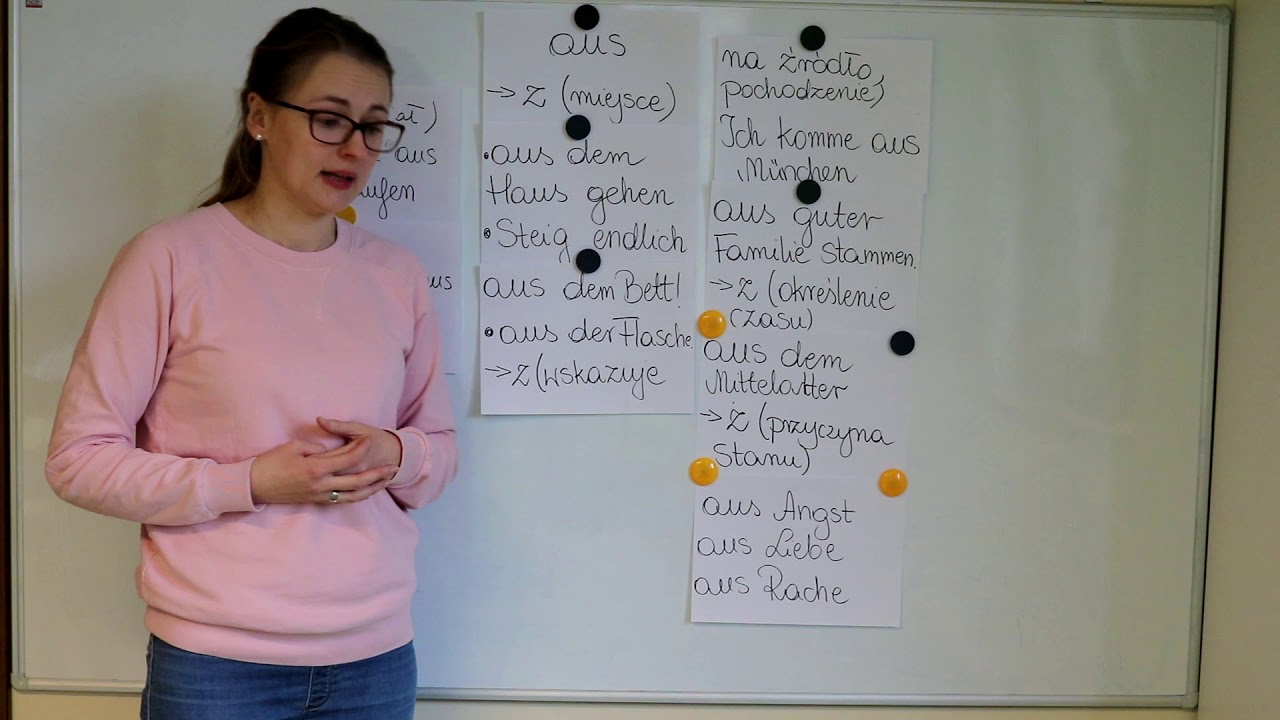 ał)
aus
ufen
us
aus
→ z (miejsce)
• aus dem
Haus gehen
• Steig endlich
aus dem Bett!
• aus der Flasche.
→ z (wskazuje
na źródło,
pochodzenie)
Ich komme aus
München
aus guter
Familie stammen.
→ z (określenie
czasu)
aus dem
Mittelatter
→ z (przyczyna
stanu)
aus Angst
aus Liebe
aus Rache